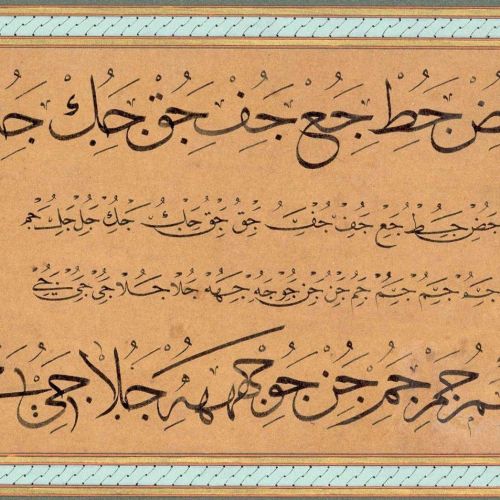 جط جع جف جق جك
جض جط جع جف جف جق جق جك جك جل جك جم
جم جم جم جن جن جو جه جهه جلا جلا جي جي جي
جم جم جن جو جههه جلا جي